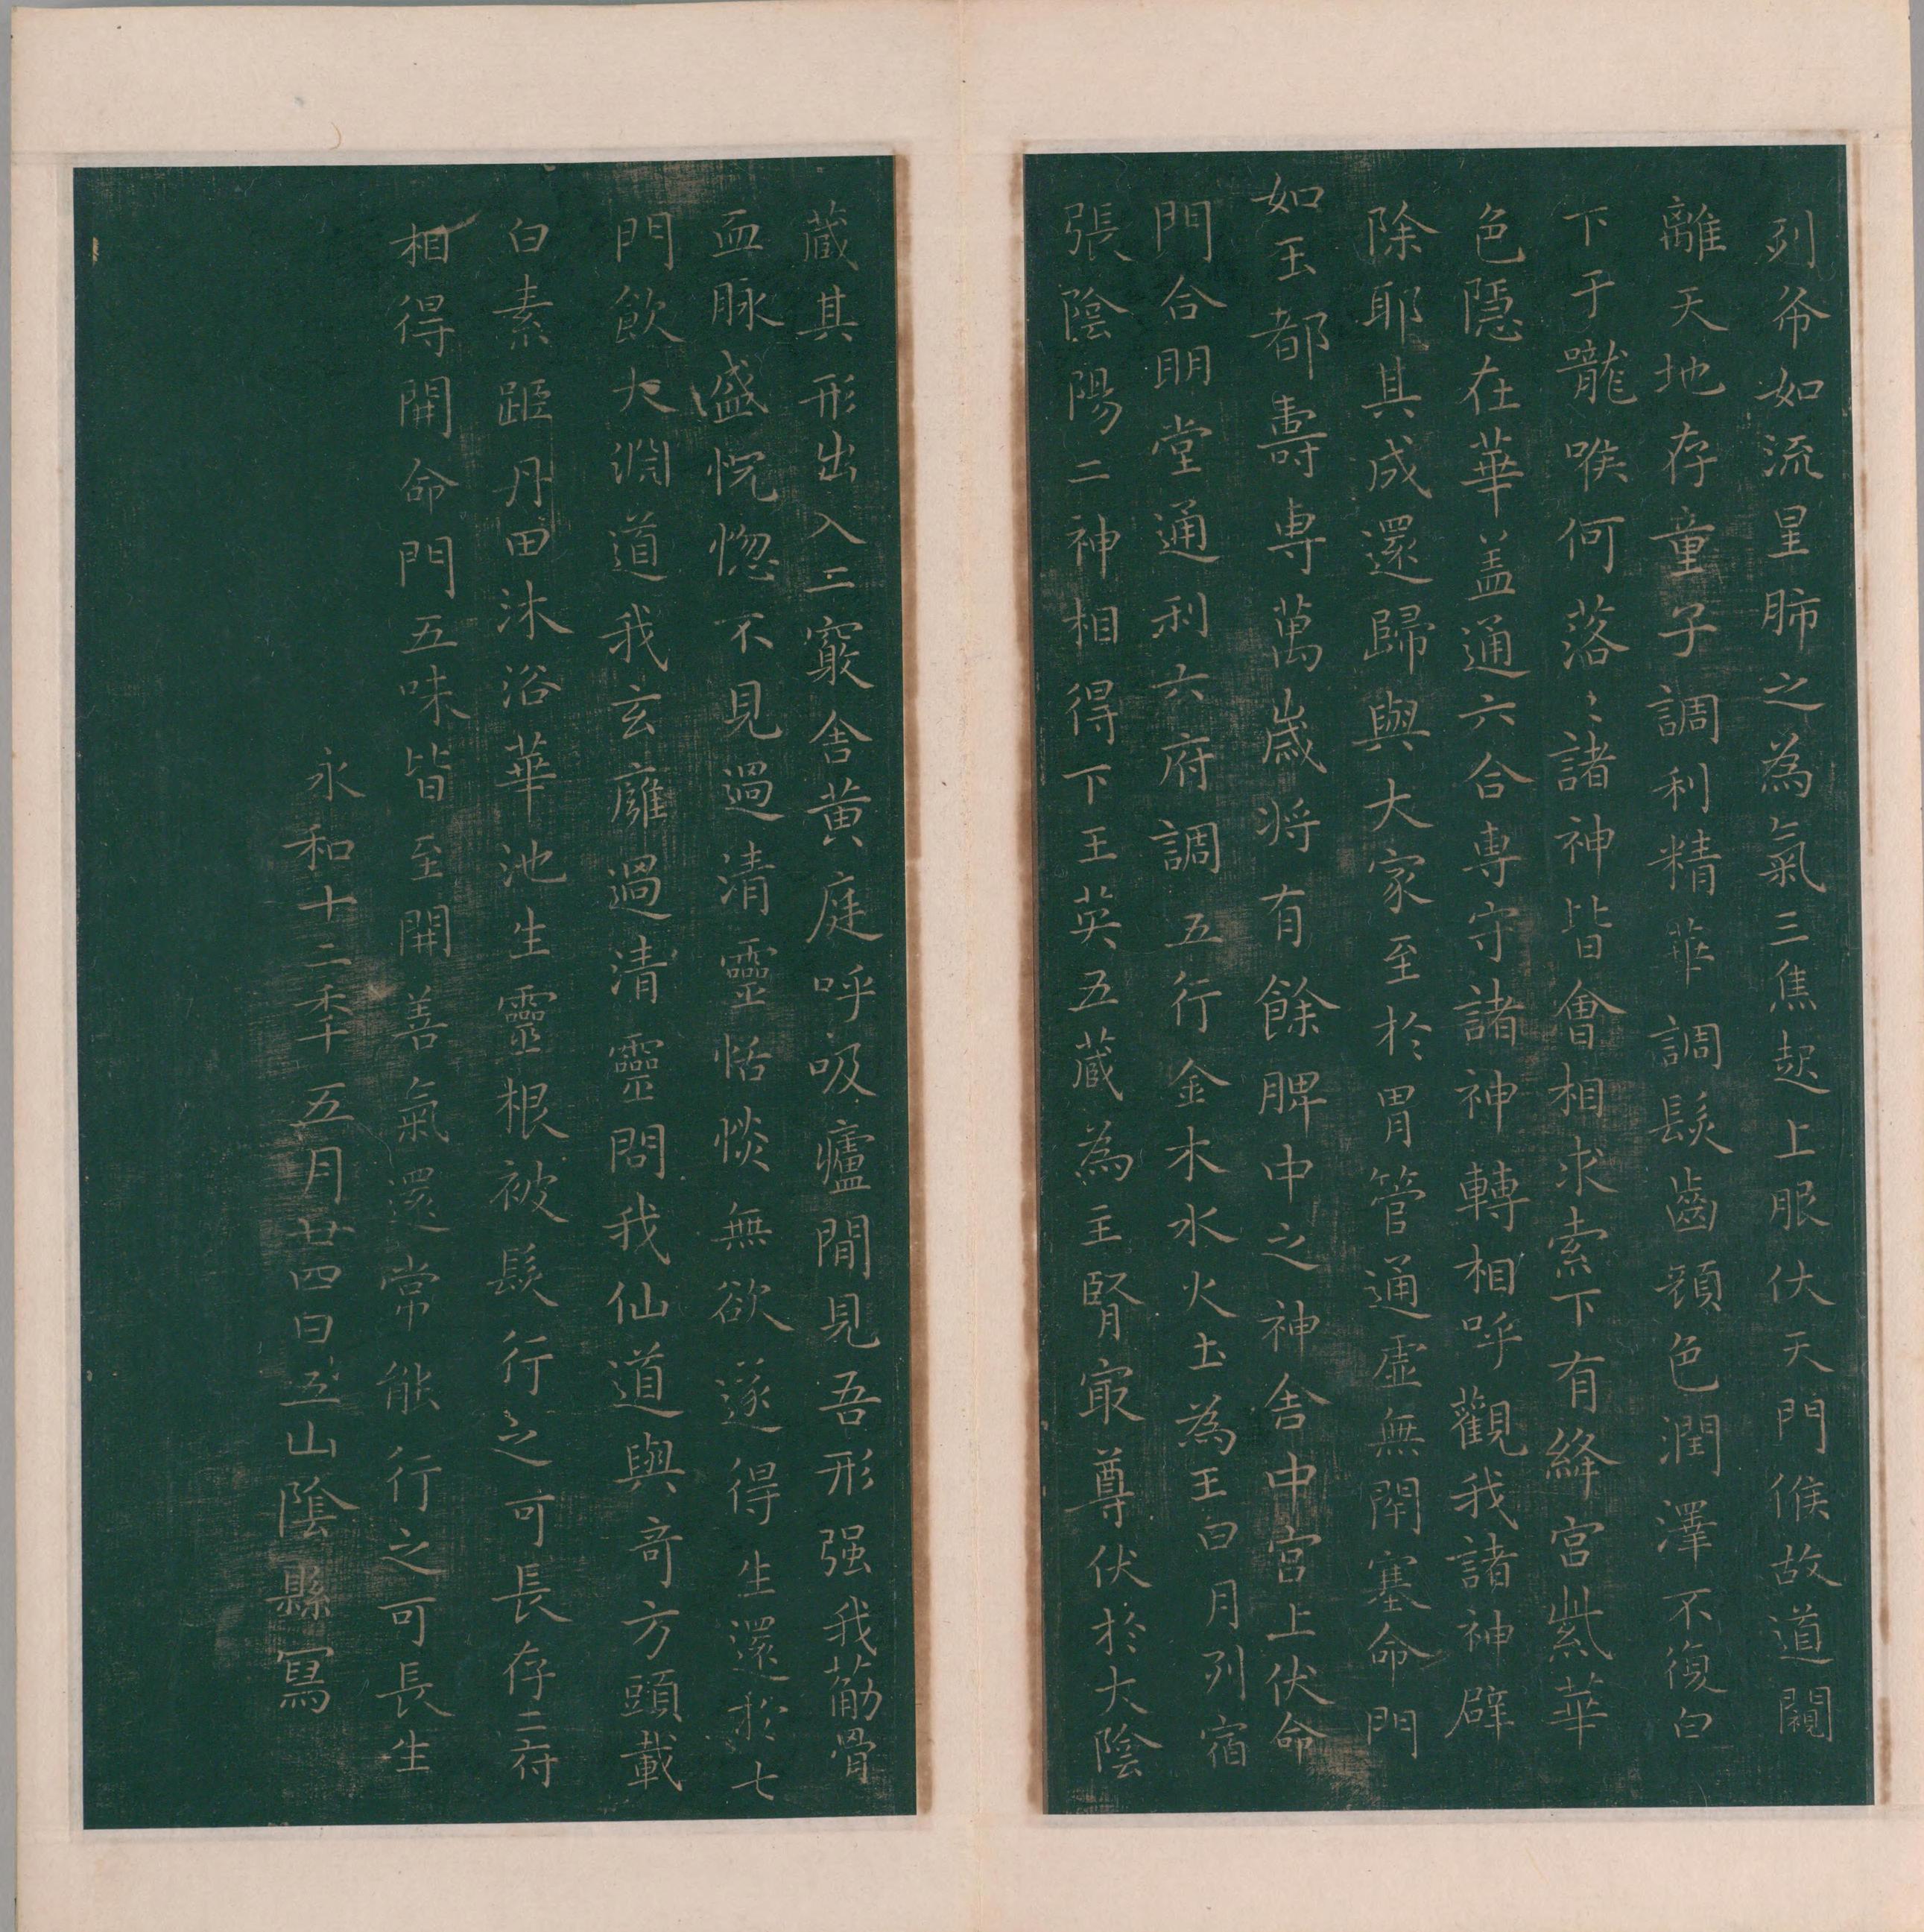 列布如流星肺之為氣三焦起上服伏天門候故道闚
離天地存童子調利精華調髮齒顏色潤澤不復白
下于嚨喉何落〻諸神皆會相求索下有絳宮紫華
色隱在華盖通六合專守諸神轉相呼觀我諸神辟
除耶其成還歸與大家至於胃管通虛無閇塞命門
如玉都壽專萬歲將有餘脾中之神舍中宮上伏命
門合明堂通利六府調五行金木水火土為王日月列宿
張陰陽二神相得下玉英五藏為主腎冣尊伏於大陰
藏其形出入二竅舍黃庭呼吸廬閒見吾形强我葋骨
血脉盛恍惚不見過清靈恬惔無欲遂得生還於七
門飲大淵道我玄廱過清靈問我仙道與奇方頭載
白素距丹田沐浴華池生靈根被髮行之可長存二府
相得開命門五味皆至開善氣還常能行之可長生
永和十二秊五月廿四日五山陰縣寫